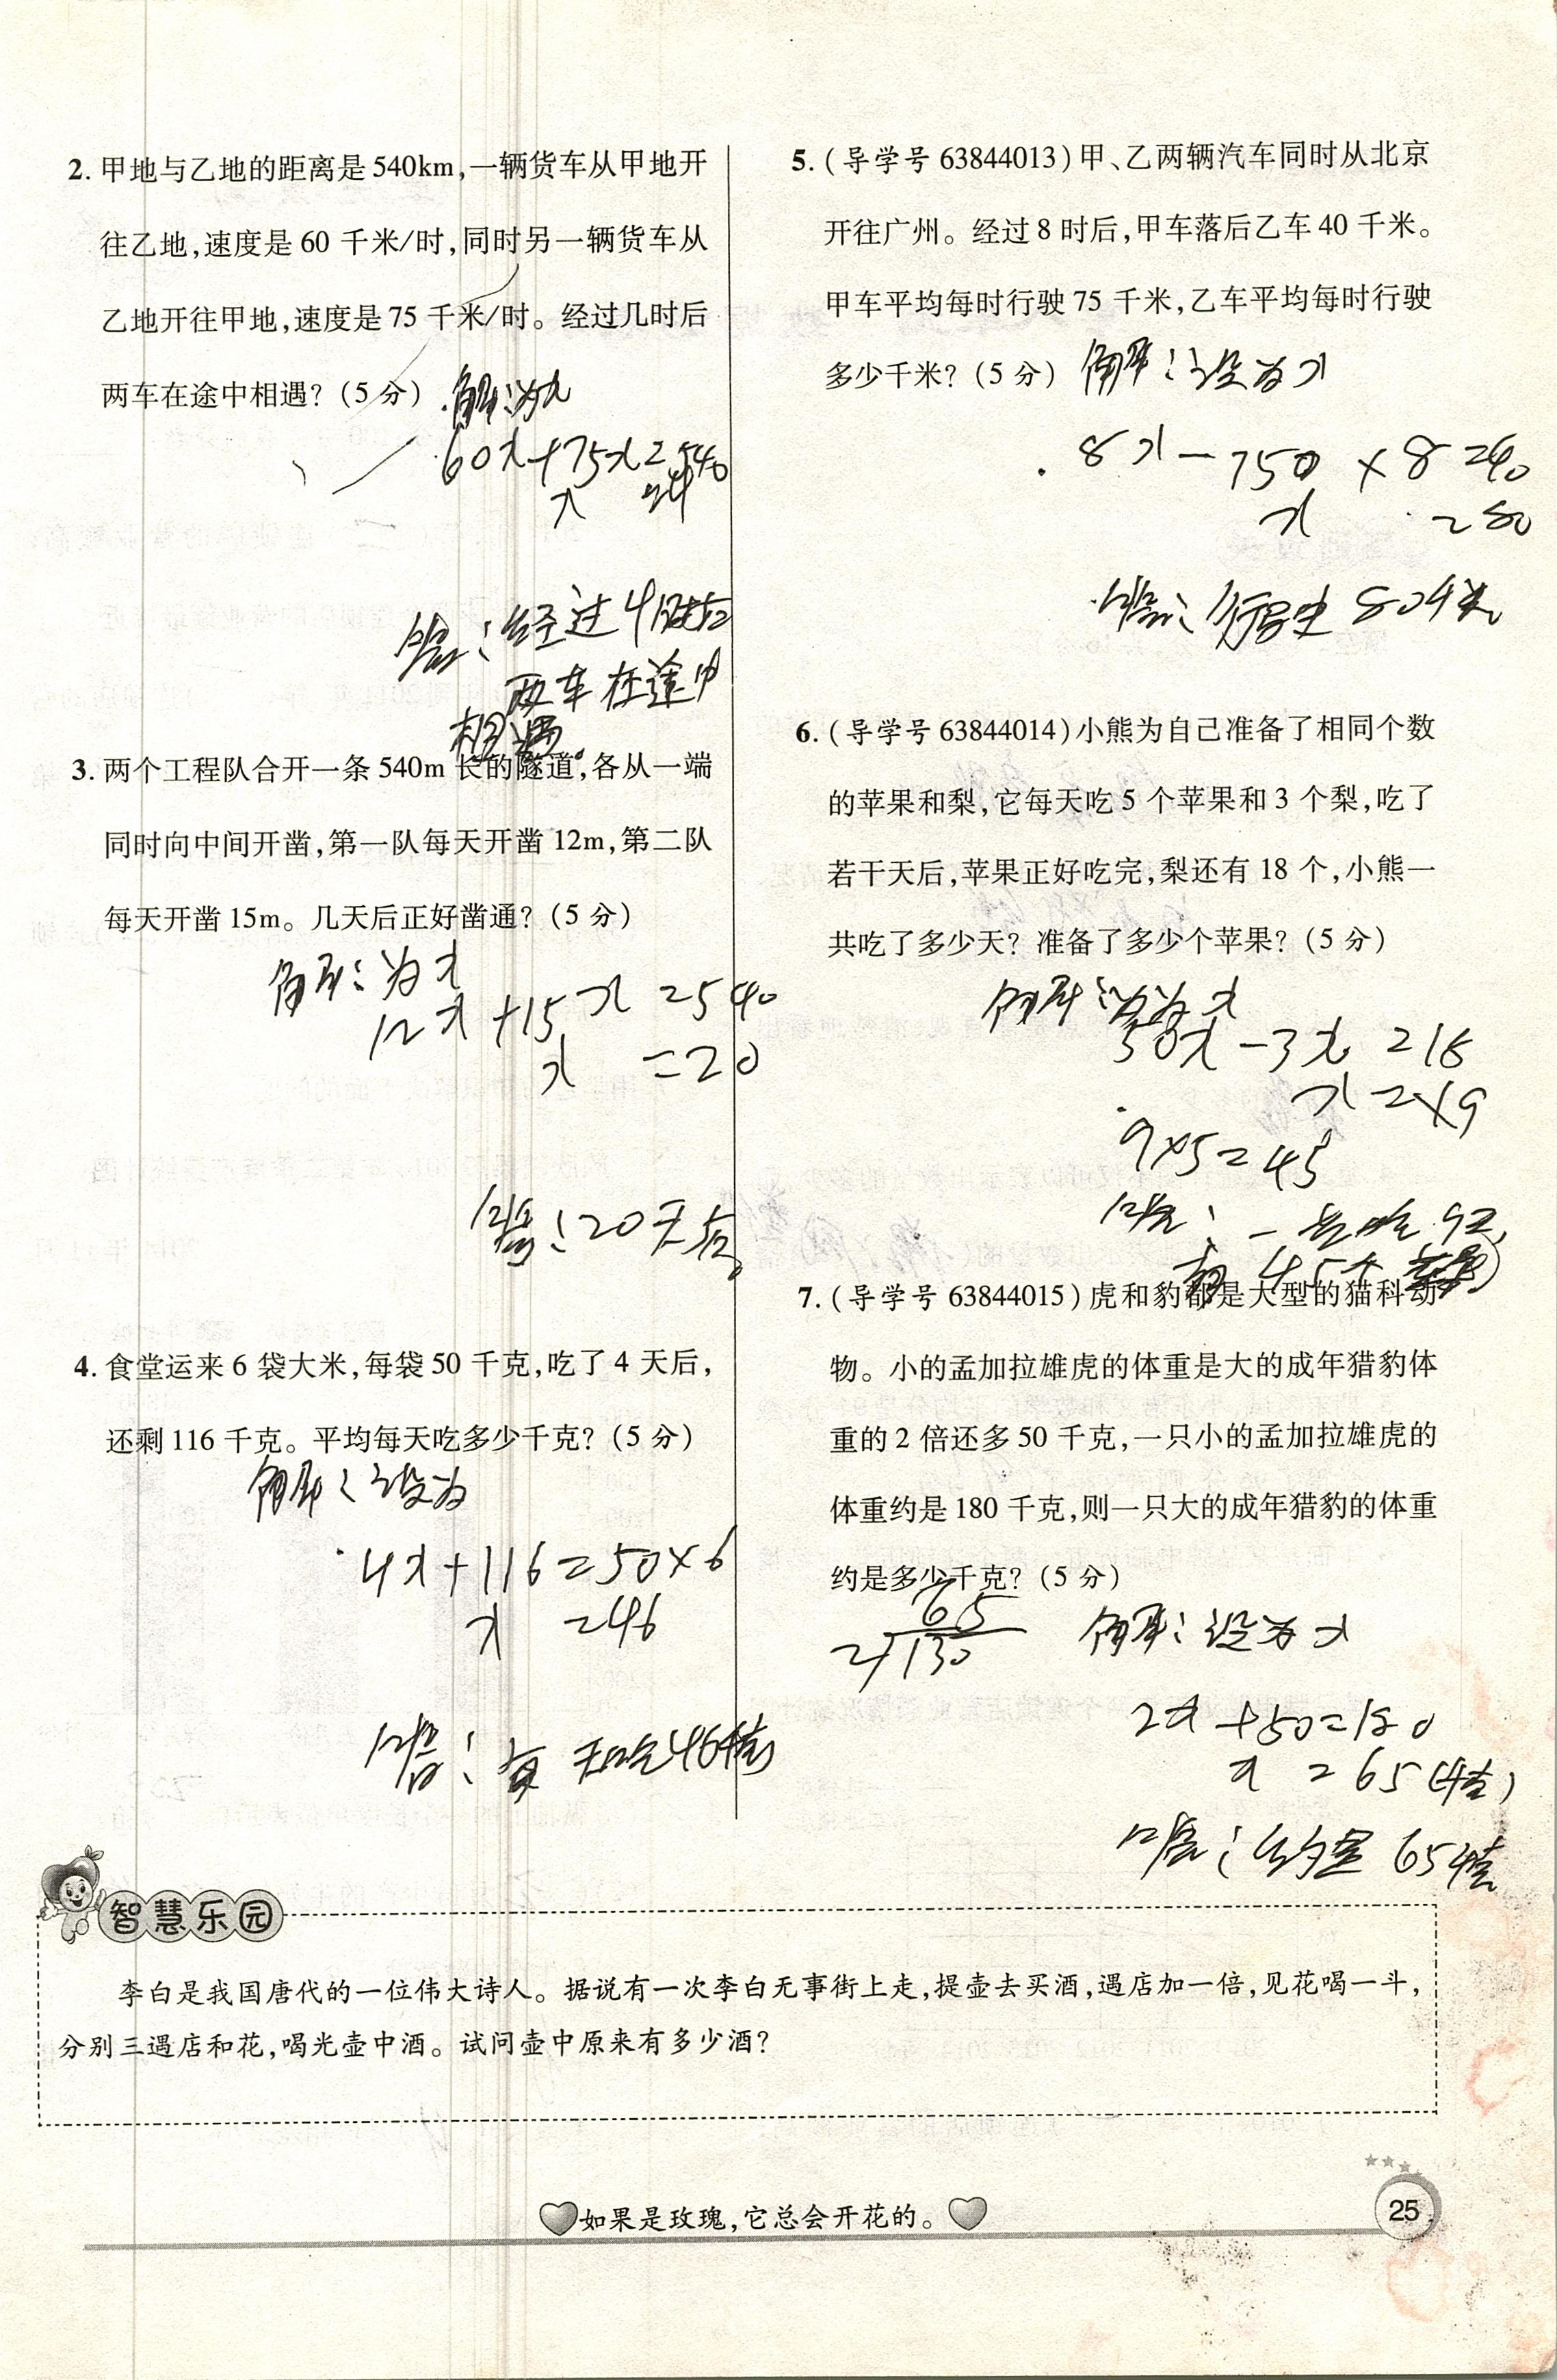 2. 甲地与乙地的距离是540km,一辆货车从甲地开
往乙地,速度是60千米/时,同时另一辆货车从
乙地开往甲地,速度是75千米/时。经过几时后
两车在途中相遇?(5分)
解:为x
60x+75x=540
x =4
答:经过4时后
两车在途中
相遇。
3. 两个工程队合开一条540m长的隧道,各从一端
同时向中间开凿,第一队每天开凿12m,第二队
每天开凿15m。几天后正好凿通?(5分)
解:为x
12x+15x=540
x =20
答:20天后。
4. 食堂运来6袋大米,每袋50千克,吃了4天后,
还剩116千克。平均每天吃多少千克?(5分)
解:设为
4x+116=50×6
x =46
答:每天吃46千克
5. (导学号63844013)甲、乙两辆汽车同时从北京
开往广州。经过8时后,甲车落后乙车40千米。
甲车平均每时行驶75千米,乙车平均每时行驶
多少千米?(5分)
解:设为x
8x-750×8=40
x =80
答:行驶80千米
6. (导学号63844014)小熊为自己准备了相同个数
的苹果和梨,它每天吃5个苹果和3个梨,吃了
若干天后,苹果正好吃完,梨还有18个,小熊一
共吃了多少天?准备了多少个苹果?(5分)
解:设为x
50x-3x=18
x=9
9×5=45
答:一共吃9天,
45个苹果
7. (导学号63844015)虎和豹都是大型的猫科动
物。小的孟加拉雄虎的体重是大的成年猎豹体
重的2倍还多50千克,一只小的孟加拉雄虎的
体重约是180千克,则一只大的成年猎豹的体重
约是多少千克?(5分)
65
2 130
解:设为x
2x+50=180
x =65(千克)
答:约是65千克
智慧乐园
李白是我国唐代的一位伟大诗人。据说有一次李白无事街上走,提壶去买酒,遇店加一倍,见花喝一斗,
分别三遇店和花,喝光壶中酒。试问壶中原来有多少酒?
如果是玫瑰,它总会开花的。
25